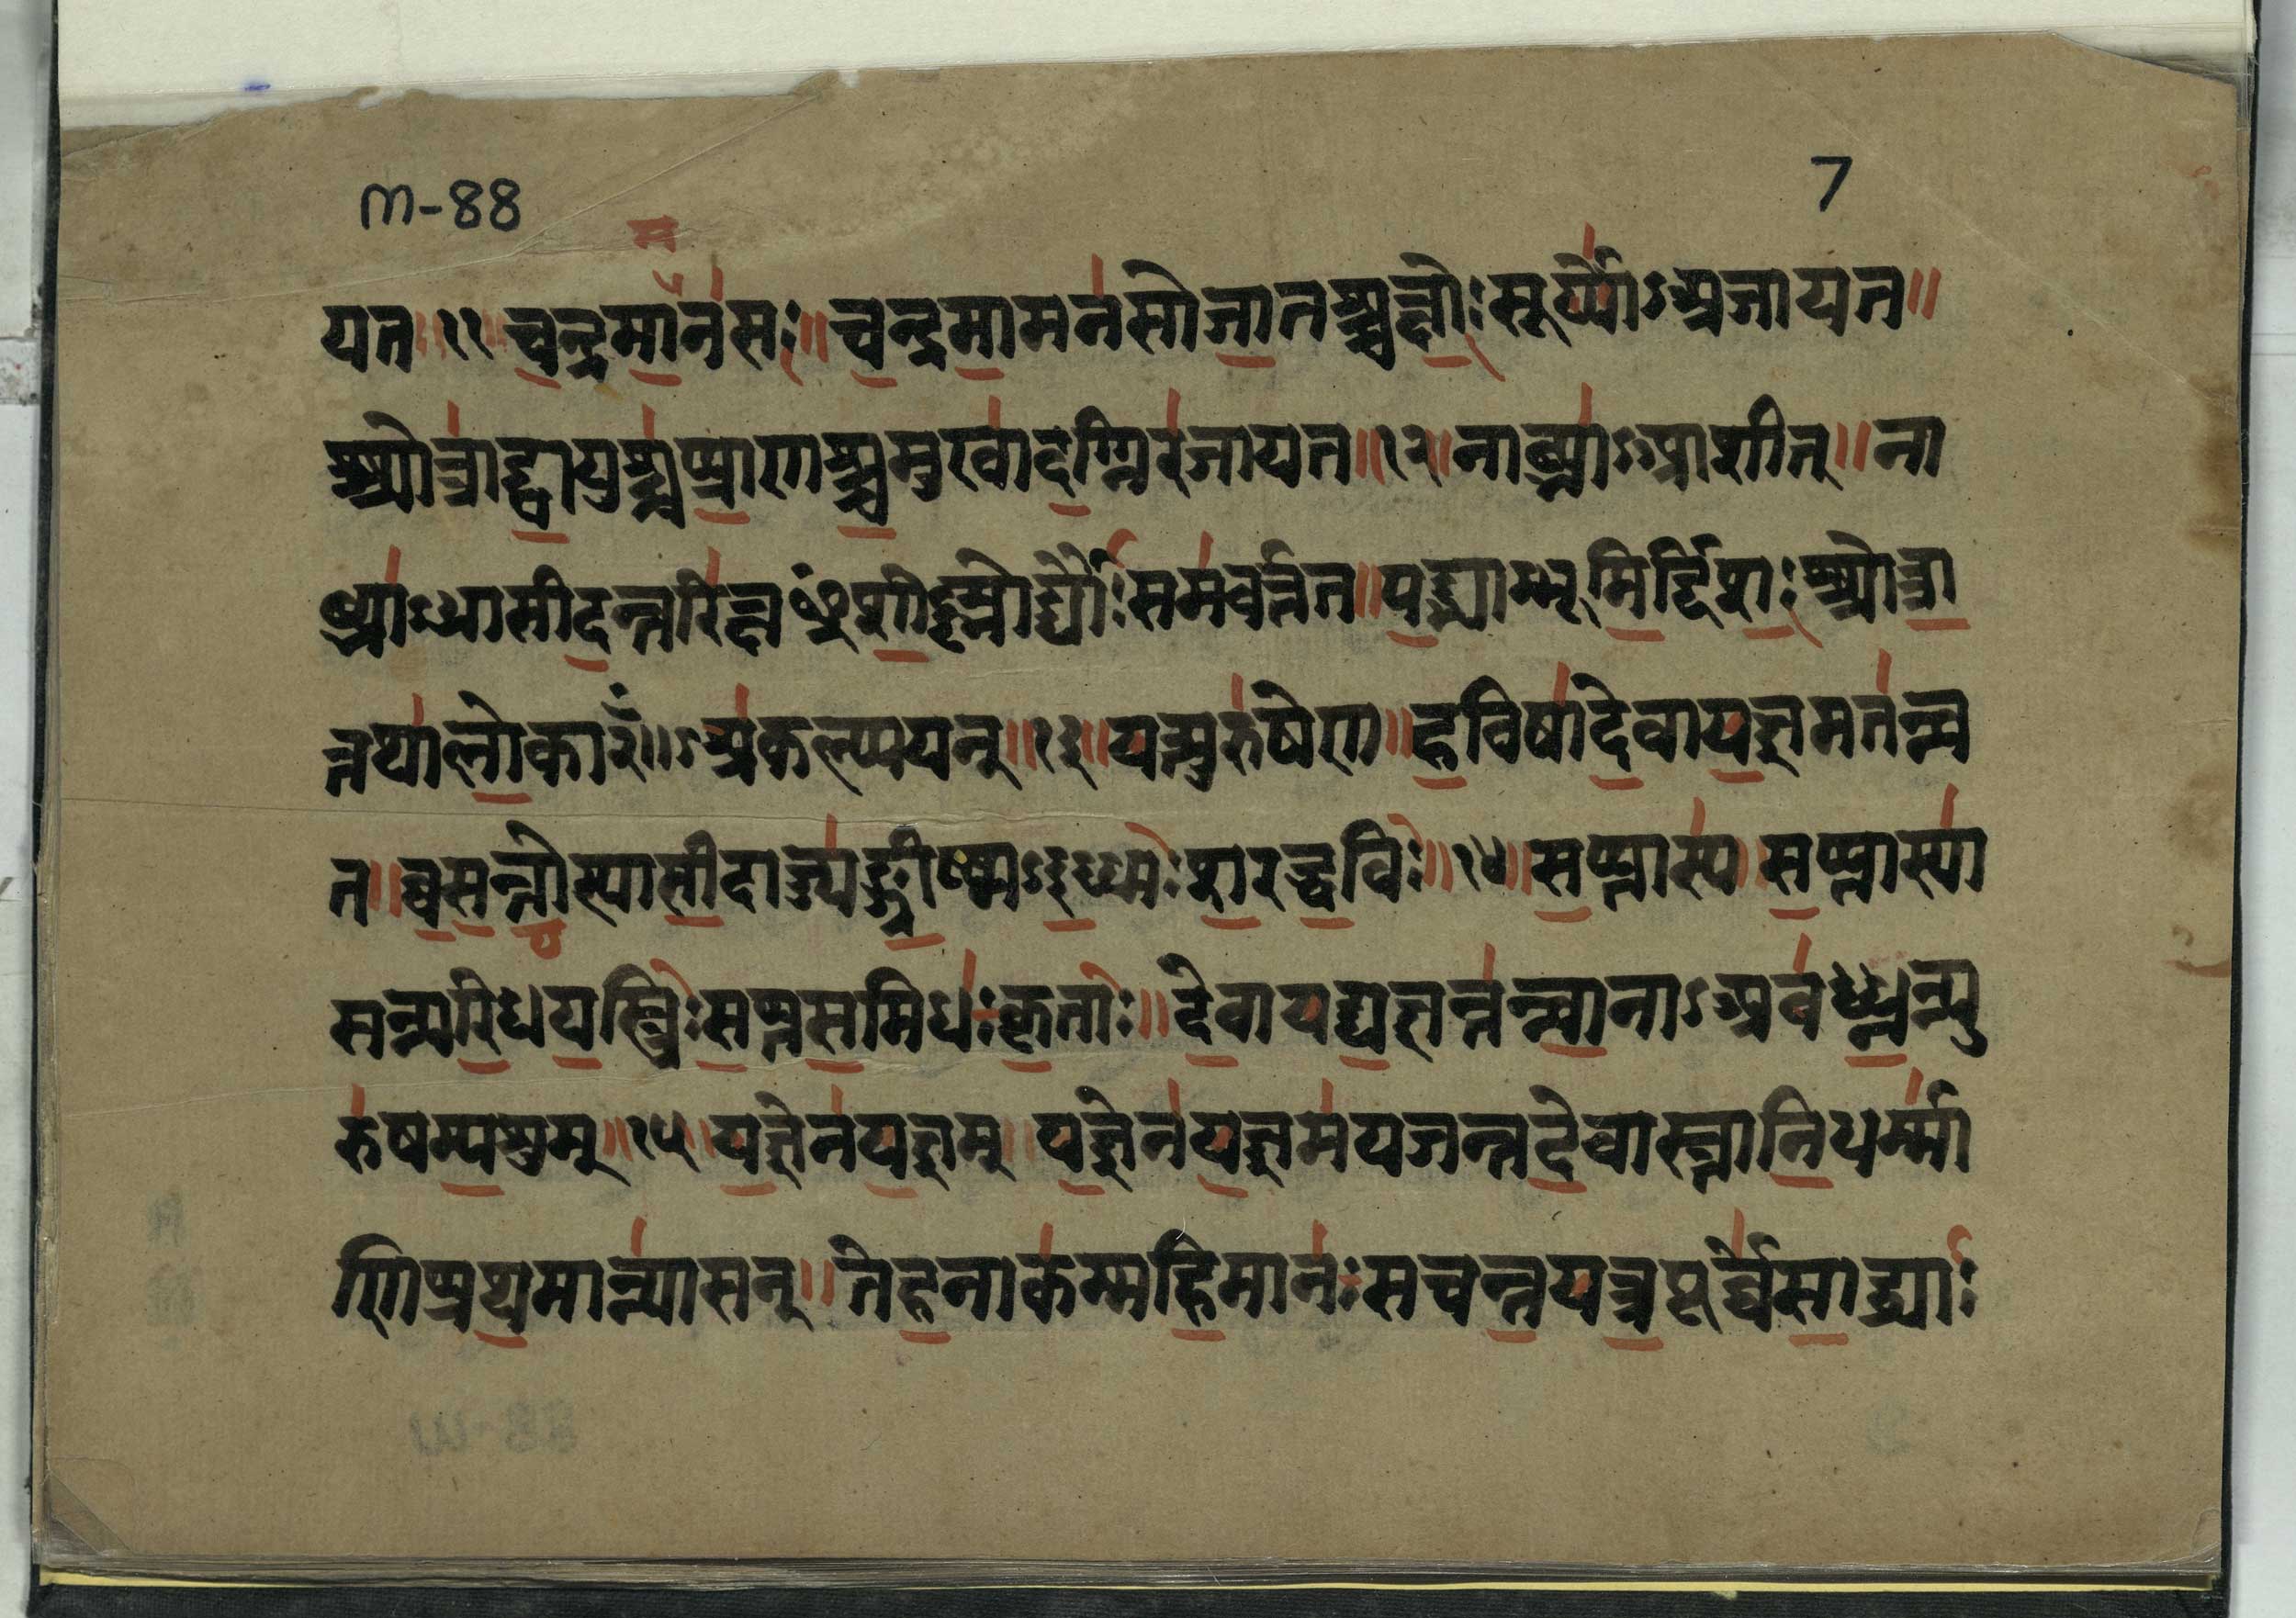 m-88
7
म
यत॥११॥चन्द्रमानसः॥चन्द्रमामनसोजातश्च्चक्षोःसूर्य्योऽअजायत॥
श्श्रोत्राद्द्वायुश्च्चप्प्राणश्च्चमुखादग्निरजायत॥१२॥नाब्भ्याऽआशीत्॥ना
ब्भ्याऽआसीदन्तरिक्षᳪशीर्ष्ण्णोद्द्यौःसमवर्त्तत॥पद्भ्याम्भूमिर्द्दिशःश्श्रोत्रा
त्तथालोकाँ२॥ऽअकल्प्पयन्॥१३॥यत्पुरुषेण॥हविषादेवायज्ञमतन्व
त॥व्वसन्तोस्यासीदाज्ज्यङ्ग्रीष्ष्मऽइध्ध्मःशरद्धविः॥१४॥सप्तास्य॥सप्तास्या
सन्परिधयस्त्रिःसप्तसमिधःकृताः॥देवायद्यज्ञन्तन्वानाऽअबध्ध्नन्पु
रुषम्पशुम्॥१५॥यज्ञेनयज्ञम्॥यज्ञेनयज्ञमयजन्तदेवास्तानिधर्म्मा
णिप्रथमान्यासन्॥तेहनाकम्महिमानःसचन्तयत्रपूर्व्वेसाद्ध्याः